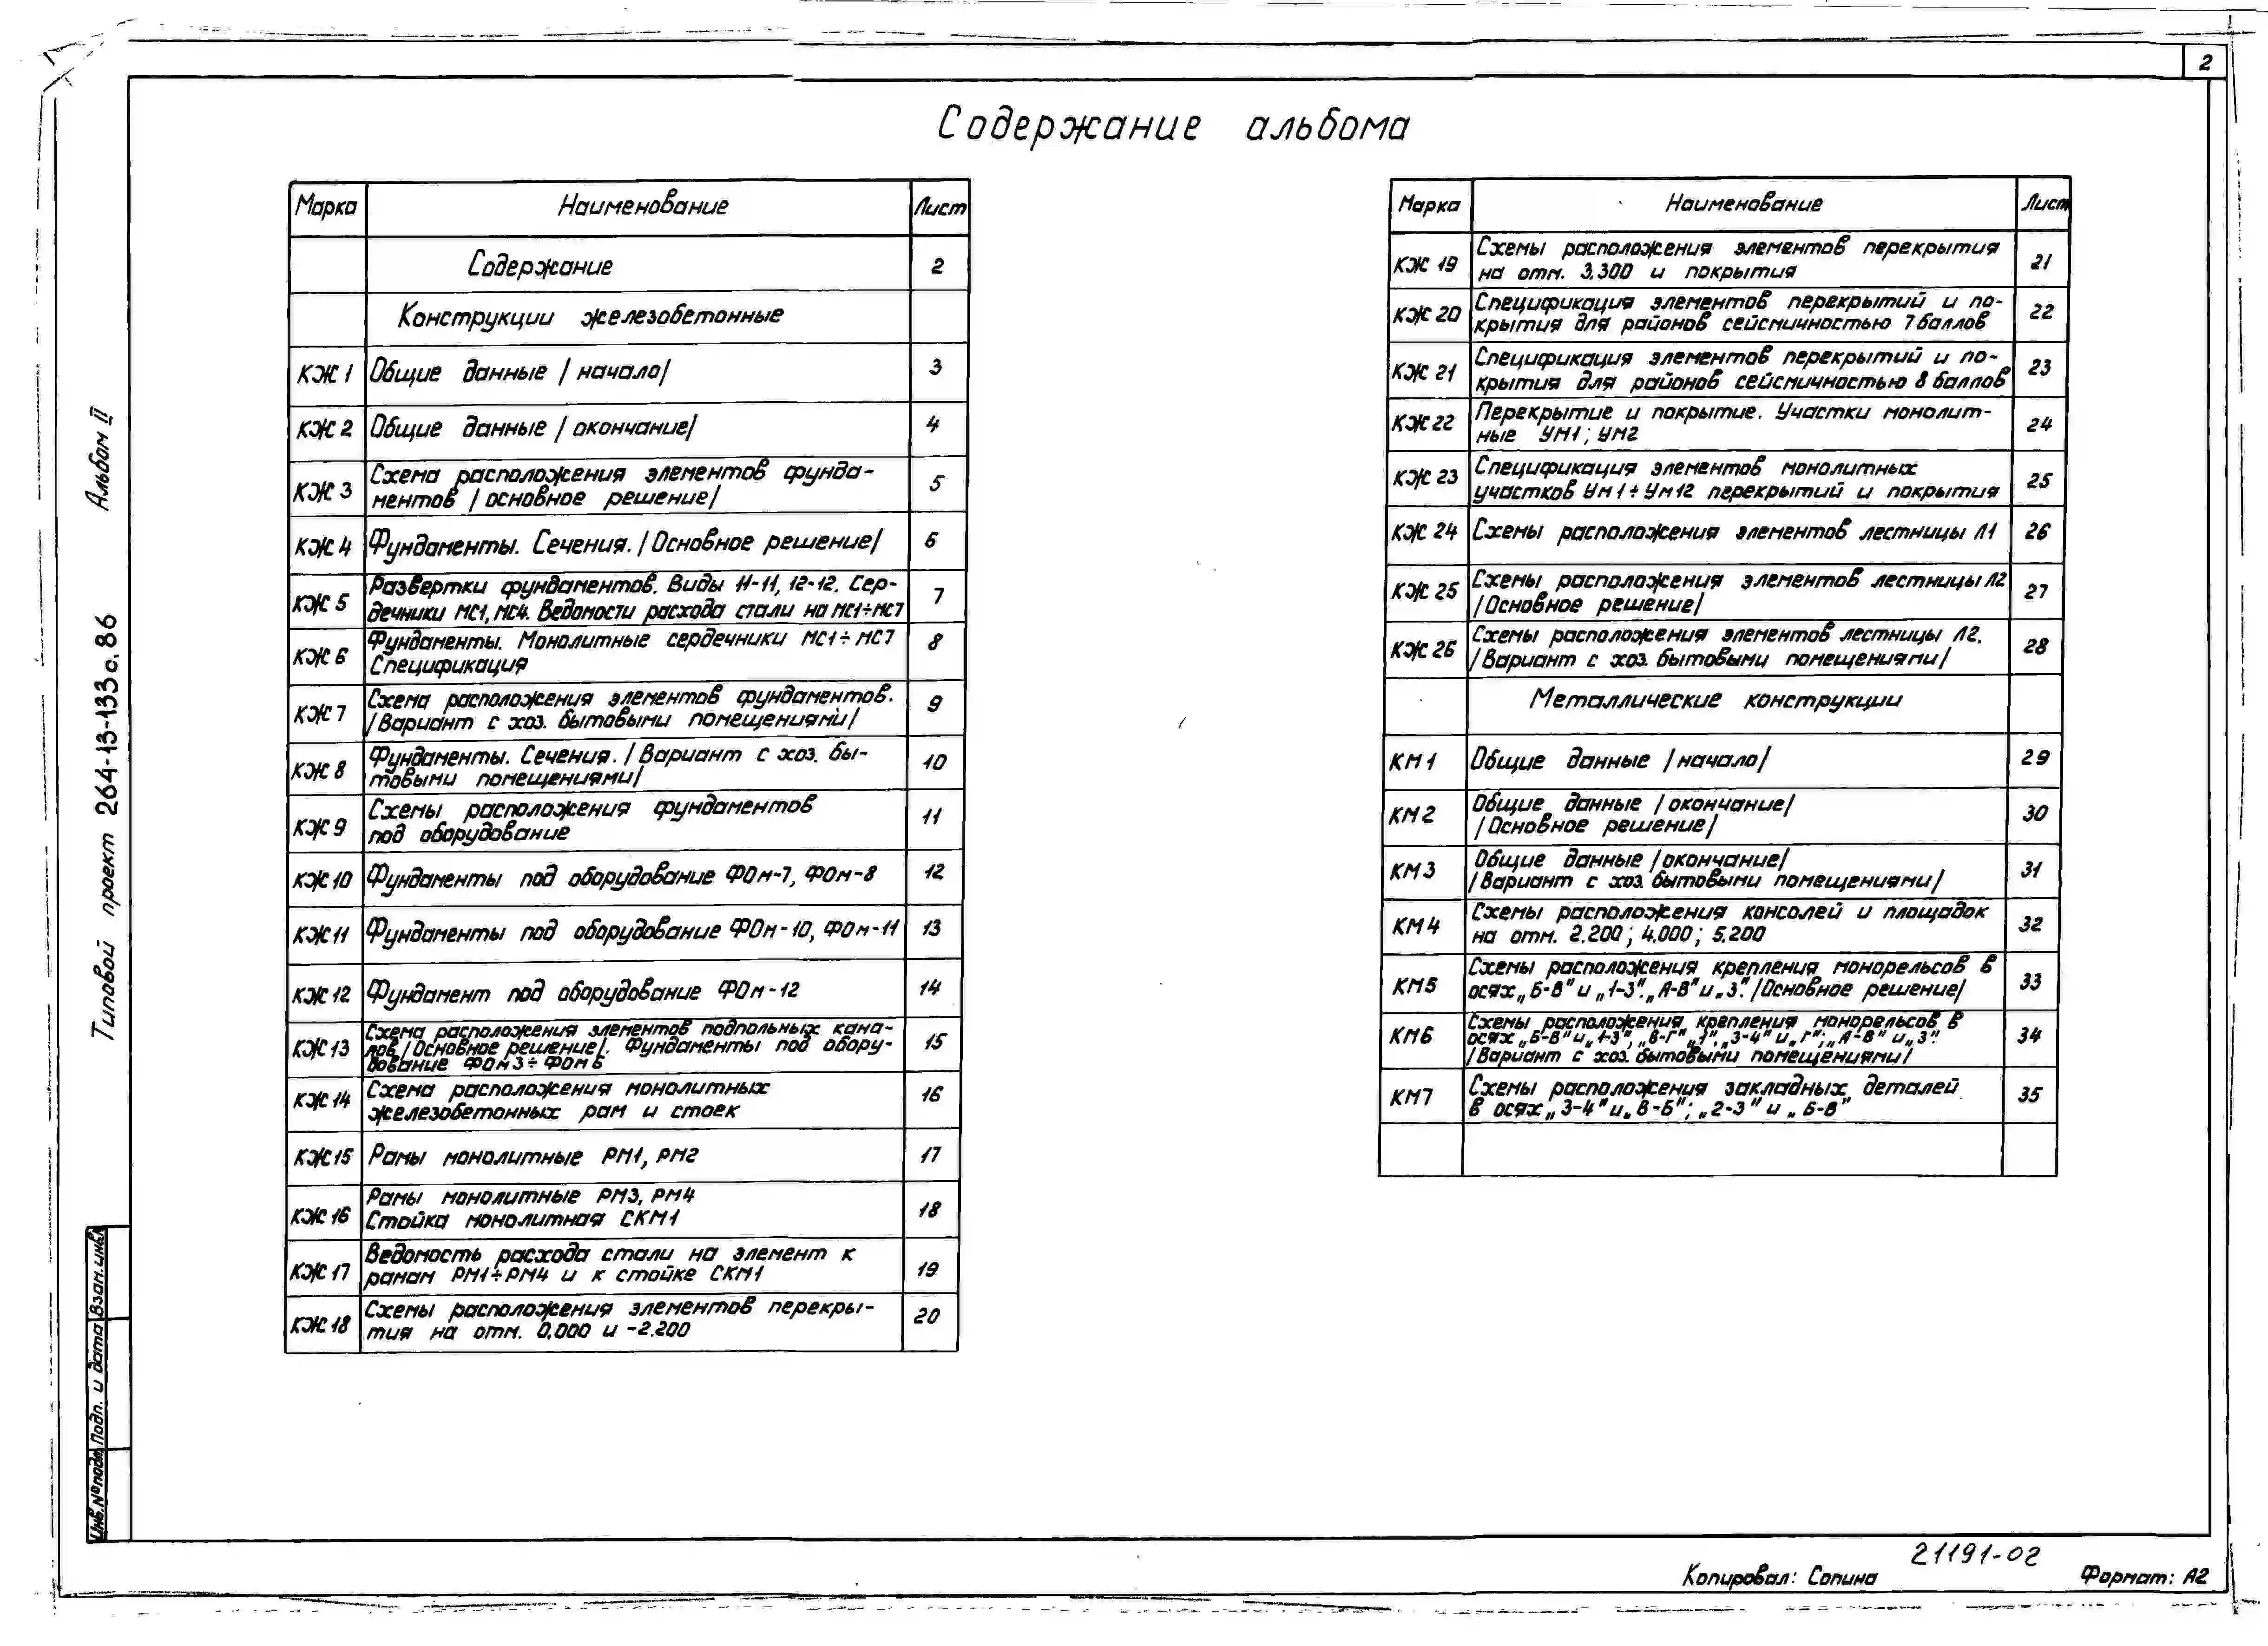 2
Содержание альбома
Марка Наименование Лист
Содержание 2
Конструкции железобетонные
КЖ 1 Общие данные /начало/ 3
КЖ 2 Общие данные /окончание/ 4
КЖ 3 Схема расположения элементов фунда-
ментов /основное решение/ 5
КЖ 4 Фундаменты. Сечения. /Основное решение/ 6
КЖ 5 Развертки фундаментов. Виды 11-11, 12-12. Сер-
дечники МС1, МС4. Ведомости расхода стали на МС1÷МС7 7
КЖ 6 Фундаменты. Монолитные сердечники МС1÷МС7
Спецификация 8
КЖ 7 Схема расположения элементов фундаментов.
/Вариант с хоз. бытовыми помещениями/ 9
КЖ 8 Фундаменты. Сечения. /Вариант с хоз. бы-
товыми помещениями/ 10
КЖ 9 Схемы расположения фундаментов
под оборудование 11
КЖ 10 Фундаменты под оборудование ФОм-7, ФОм-8 12
КЖ 11 Фундаменты под оборудование ФОм-10, ФОм-11 13
КЖ 12 Фундамент под оборудование ФОм-12 14
КЖ 13 Схема расположения элементов подпольных кана-
лов /Основное решение/. Фундаменты под обору-
дование ФОм3÷ФОм6 15
КЖ 14 Схема расположения монолитных
железобетонных рам и стоек 16
КЖ 15 Рамы монолитные РМ1, РМ2 17
КЖ 16 Рамы монолитные РМ3, РМ4
Стойка монолитная СКМ1 18
КЖ 17 Ведомость расхода стали на элемент к
рамам РМ1÷РМ4 и к стойке СКМ1 19
КЖ 18 Схемы расположения элементов перекры-
тия на отм. 0.000 и -2.200 20
Марка Наименование Лист
КЖ 19 Схемы расположения элементов перекрытия
на отм. 3.300 и покрытия 21
КЖ 20 Спецификация элементов перекрытий и по-
крытия для районов сейсмичностью 7 баллов 22
КЖ 21 Спецификация элементов перекрытий и по-
крытия для районов сейсмичностью 8 баллов 23
КЖ 22 Перекрытие и покрытие. Участки монолит-
ные УМ1; УМ2 24
КЖ 23 Спецификация элементов монолитных
участков Ум1÷Ум12 перекрытий и покрытия 25
КЖ 24 Схемы расположения элементов лестницы Л1 26
КЖ 25 Схемы расположения элементов лестницы Л2
/Основное решение/ 27
КЖ 26 Схемы расположения элементов лестницы Л2.
/Вариант с хоз. бытовыми помещениями/ 28
Металлические конструкции
КМ 1 Общие данные /начало/ 29
КМ 2 Общие данные /окончание/
/Основное решение/ 30
КМ 3 Общие данные /окончание/
/Вариант с хоз. бытовыми помещениями/ 31
КМ 4 Схемы расположения консолей и площадок
на отм. 2.200; 4.000; 5.200 32
КМ5 Схемы расположения крепления монорельсов в
осях „Б-В" и „1-3". „А-В" и „3". /Основное решение/ 33
КМ6 Схемы расположения крепления монорельсов в
осях „Б-В" и „1-3", „В-Г" „1", „3-4" и „Г"; „А-В" и „3".
/Вариант с хоз. бытовыми помещениями/ 34
КМ7 Схемы расположения закладных деталей
в осях „3-4" и „В-Б"; „2-3" и „Б-В" 35
Типовой проект 264-13-133с.86 Альбом II
Инв.№подл. Подп. и дата Взам.инв.№
21191-02
Копировал: Сопина Формат: А2